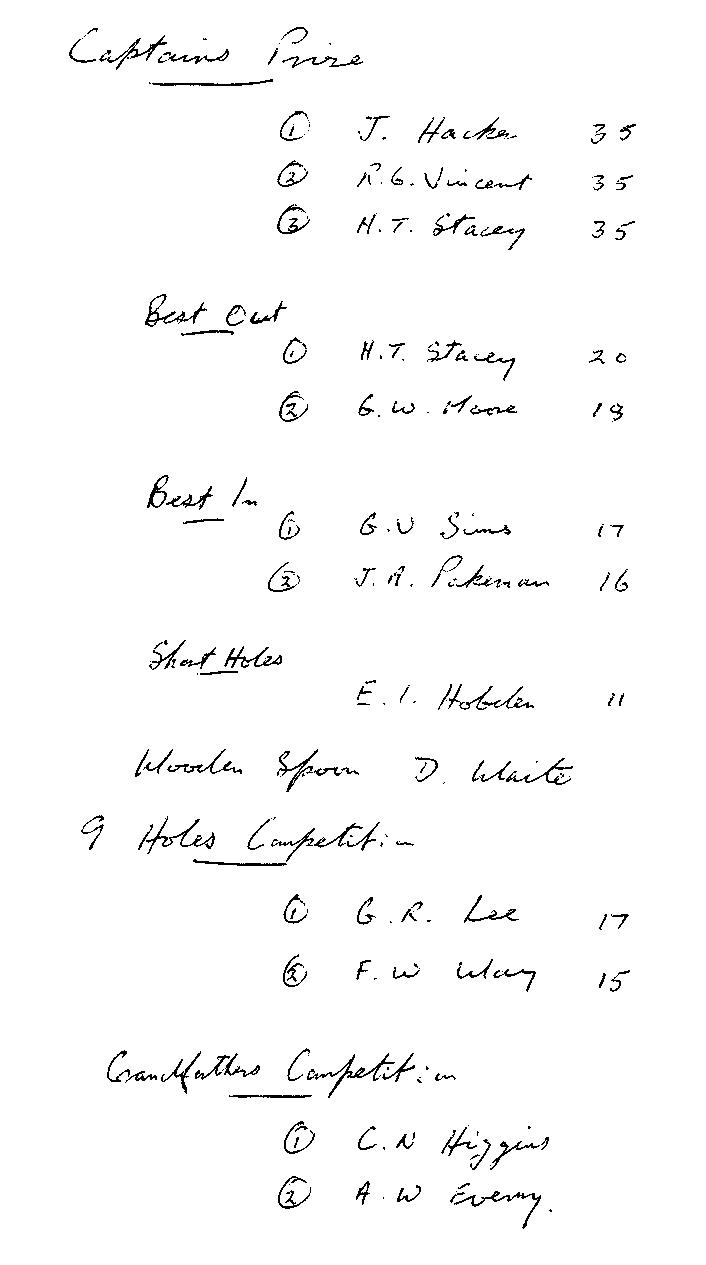 Captains Prize
① J. Hacker 35
② R.G. Vincent 35
③ H.T. Stacey 35
Best Out
① H.T. Stacey 20
② G.W. Moore 18
Best In
① G.V Sims 17
② J.A. Pakeman 16
Short Holes
E.I. Hobden 11
Wooden Spoon D. Waite
9 Holes Competition
① G.R. Lee 17
② F.W Way 15
Grandfathers Competition
① C.N Higgins
② A.W Evemy.